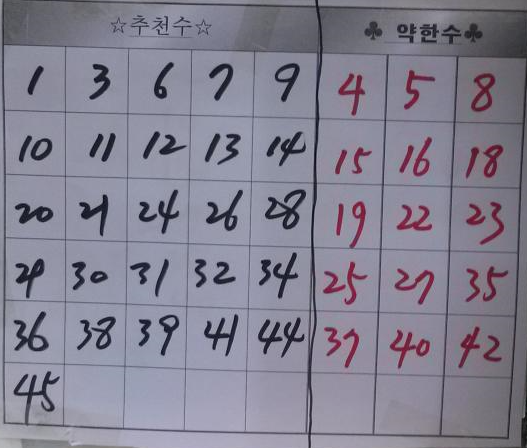 ☆추천수☆ ♣ 약한수♣
1 3 6 7 9 4 5 8
10 11 12 13 14 15 16 18
20 21 24 26 28 19 22 23
29 30 31 32 34 25 27 35
36 38 39 41 44 37 40 42
45